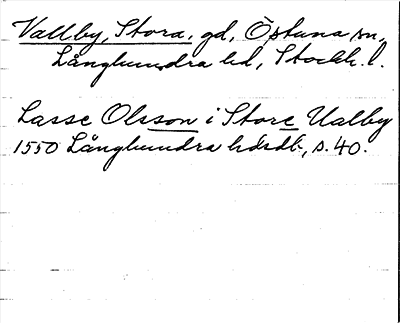 Vallby, Stora, gd, Östuna sn,
Långhundra hd, Stockh. l.
Lasse Olsson i Store Ualby
1550 Långhundra hdsdb, s. 40.